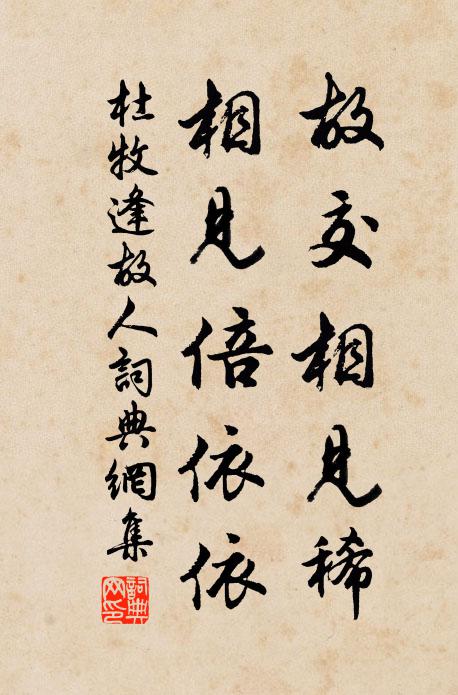 故交相見稀
相見倍依依
杜牧逢故人詞典網集
詞典网印